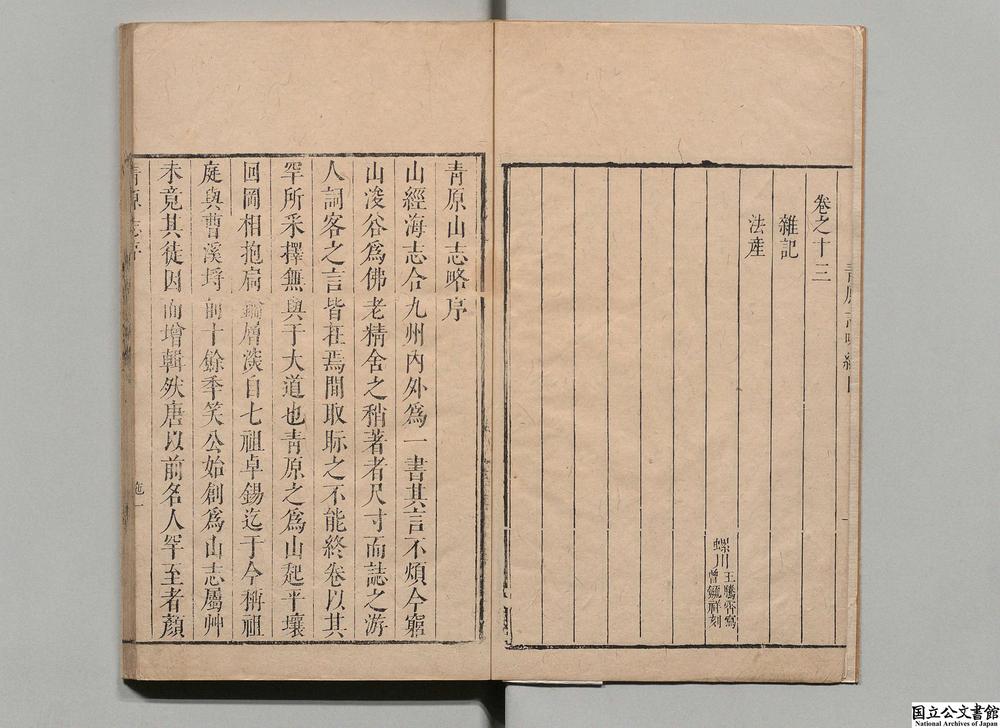 卷之十三
雜記
法産
螺川
王騰霄寫
曾鍾祥刻
青原山志略序
山經海志合九州內外爲一書其言不煩今窮
山浚谷爲佛老精舍之稍著者尺寸而誌之游
人詞客之言皆在焉間取眎之不能終卷以其
罕所采擇無與于大道也青原之爲山起平壤
回岡相抱扃鑰層淡自七祖卓錫迄于今稱祖
庭與曹溪埒前十餘季笑公始創爲山志屬艸
未竟其徒因而增輯然唐以前名人罕至者顏
青原志序
施一
国立公文書館
National Archives of Japan